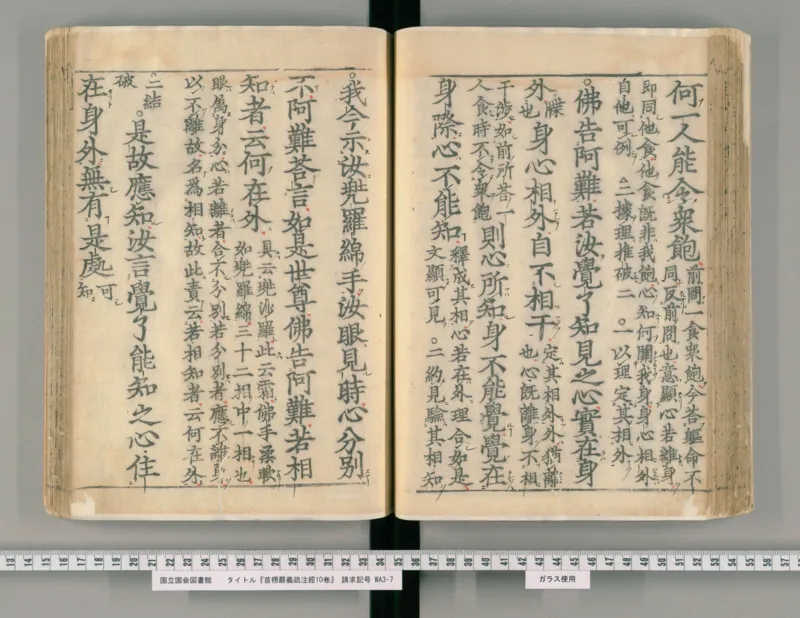 何一人能令衆飽
前問一食衆飽今荅軀命不
同反前問也意顯心若離身
即同他食他食既非我飽心知何關我身身心相外
自他可例 二據理推破二 一以理定其相外
佛告阿難若汝覺了知見之心實在身
外
牒
外也
身心相外自不相干
定其相外外猶離
也心既離身不相
干涉如前所荅一
人食時不令衆飽
則心所知身不能覺覺在
身際心不能知
釋成其相心若在外理合如是
文顯可見 二約見驗其相知
我今示汝兜羅綿手汝眼見時心分別
不阿難荅言如是世尊佛告阿難若相
知者云何在外
具云兜沙羅此云霜佛手柔軟
如兜羅綿三十二相中一相也
眼属身分心若離者合不分別若分別者應不離身
以不離故名爲相知故此責云若相知者云何在外
二結
破
是故應知汝言覺了能知之心住
在身外無有是處
可
知
13 14 15 16 17 18 19 20 21 22 23 24 25 26 27 28 29 30 31 32 33 34 35 36 37 38 39 40 41 42 43 44 45 46 47 48 49 50 51 52 53 54 55 56 57
国立国会図書館 タイトル『首楞嚴義疏注經10巻』 請求記号 WA3-7
ガラス使用